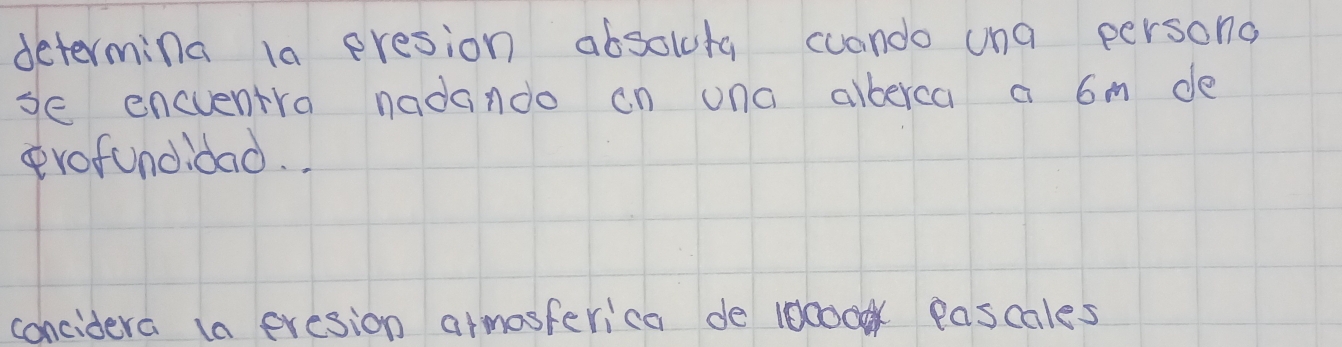 determina la presion absoluta cuando una persona
se encuentra nadando en una alberca a 6m de
profundidad..
concidera la presion atmosferica de pascales